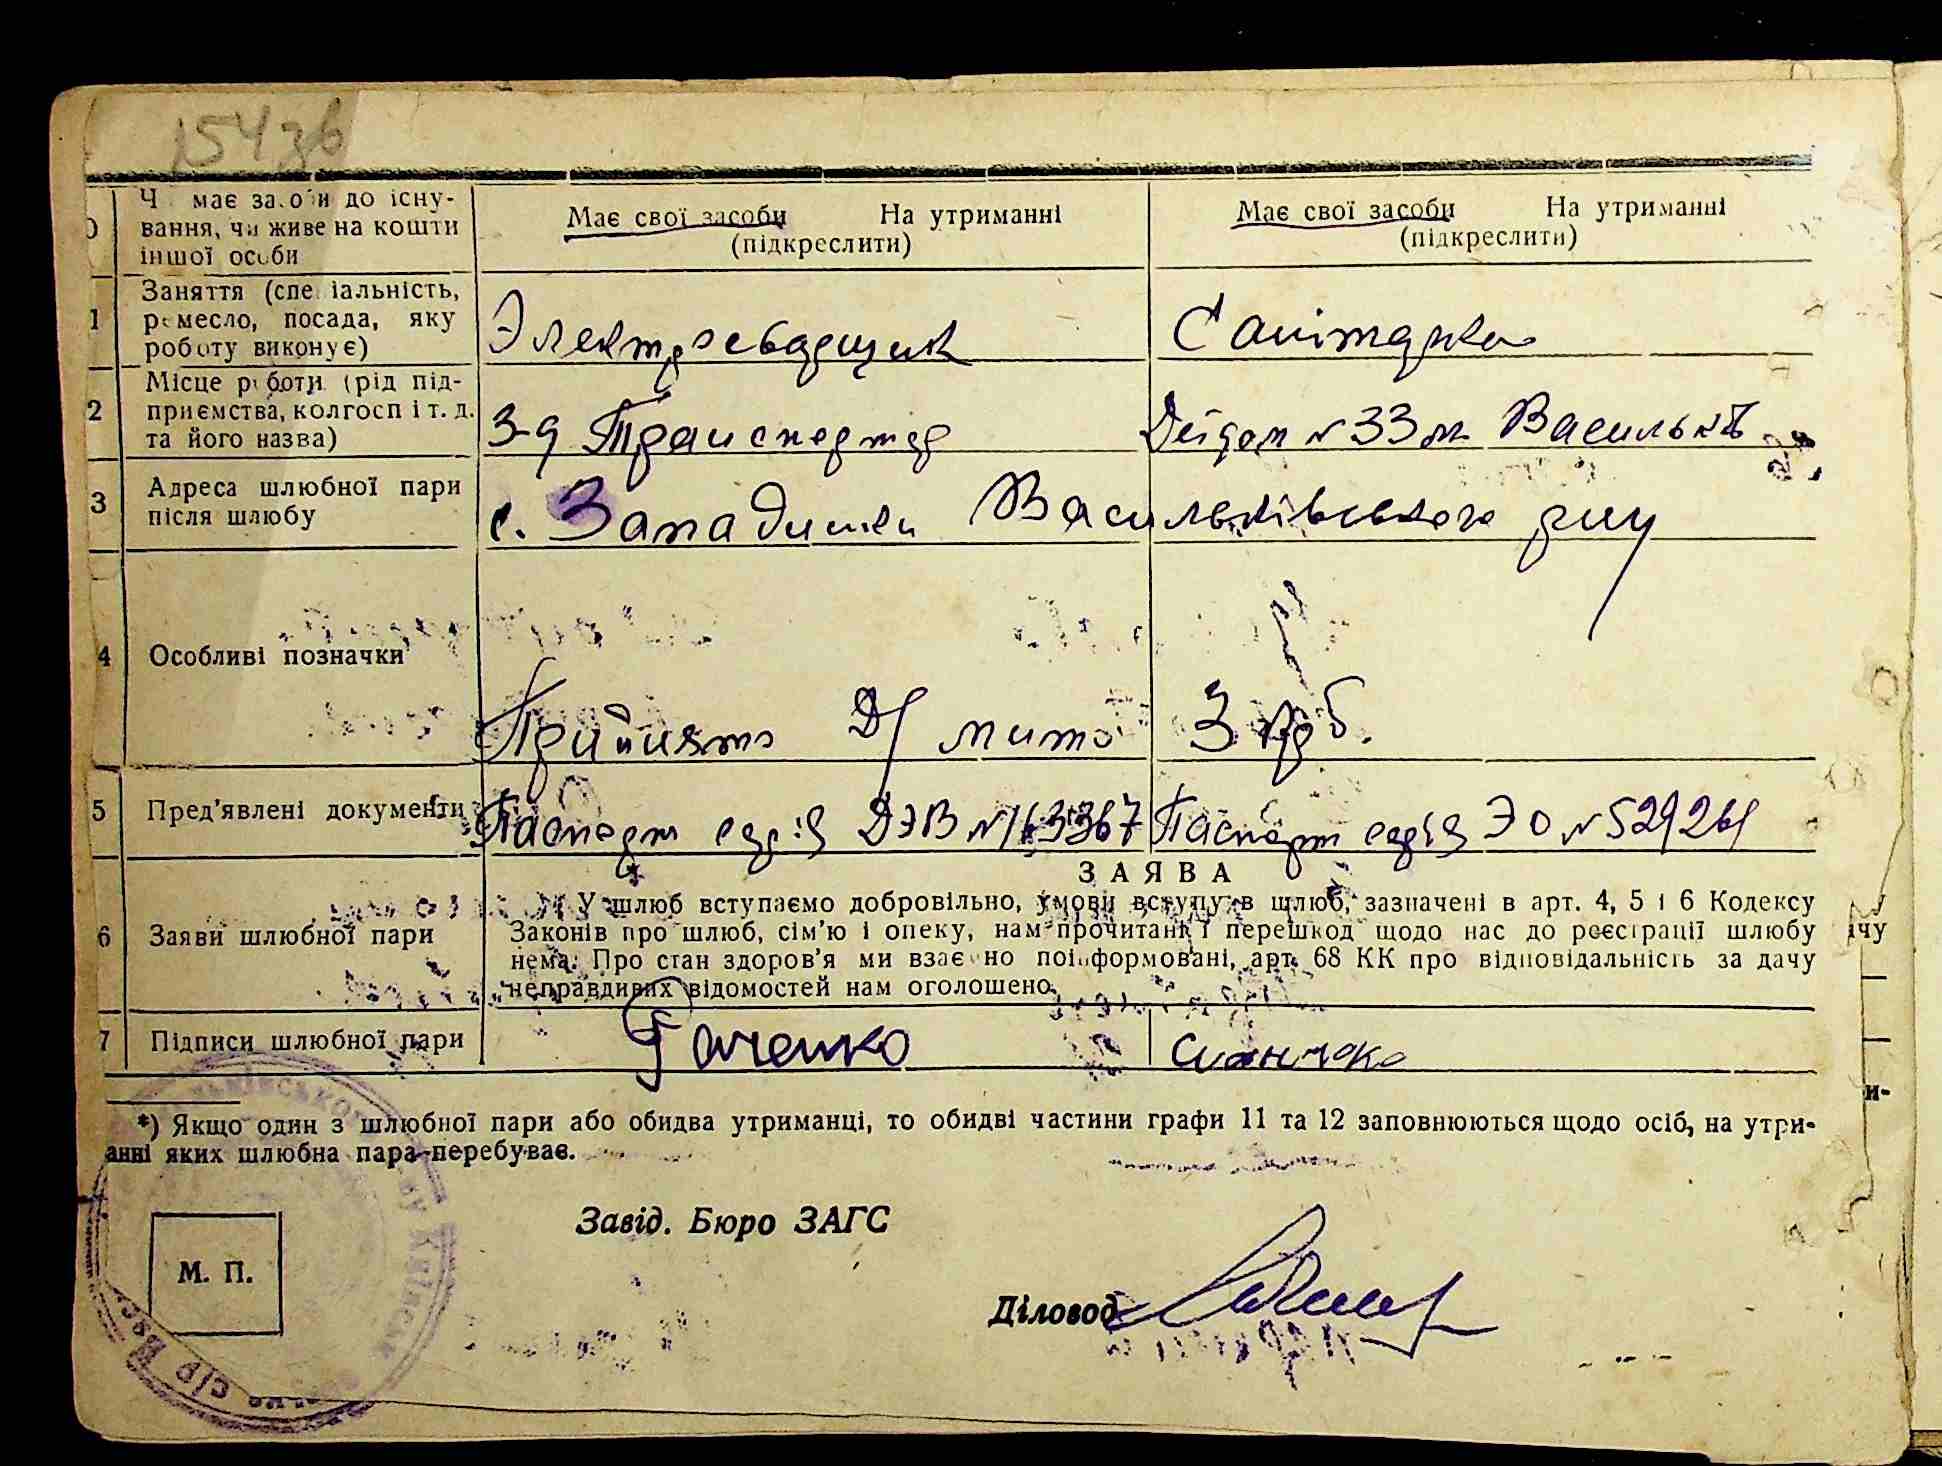 154зв
Ч має засоби до існу-
вання, чи живе на кошти
іншої особи
Має свої засоби На утриманні
(підкреслити)
Має свої засоби На утриманні
(підкреслити)
1 Заняття (спеціальність,
ремесло, посада, яку
роботу виконує)
Электросварщик
Санітарка
2 Місце роботи (рід під-
приємства, колгосп і т. д.
та його назва)
З-д Транспортер
Дитдом № 33 м. Васильків
3 Адреса шлюбної пари
після шлюбу
с. Западинка Васильківського р-ну
4 Особливі позначки
Прийнято Д/ мито 3 крб.
5 Пред'явлені документи
Паспорт серія ДЭВ № 163367
Паспорт серія ЭО № 529261
ЗАЯВА
6 Заяви шлюбної пари
У шлюб вступаємо добровільно, умови вступу в шлюб, зазначені в арт. 4, 5 і 6 Кодексу
Законів про шлюб, сім'ю і опеку, нам прочитані і перешкод щодо нас до реєстрації шлюбу
нема. Про стан здоров'я ми взаємно поінформовані, арт. 68 КК про відповідальність за дачу
неправдивих відомостей нам оголошено.
7 Підписи шлюбної пари
*) Якщо один з шлюбної пари або обидва утриманці, то обидві частини графи 11 та 12 заповнюються щодо осіб, на утри-
анні яких шлюбна пара перебуває.
Завід. Бюро ЗАГС
М. П.
Діловод